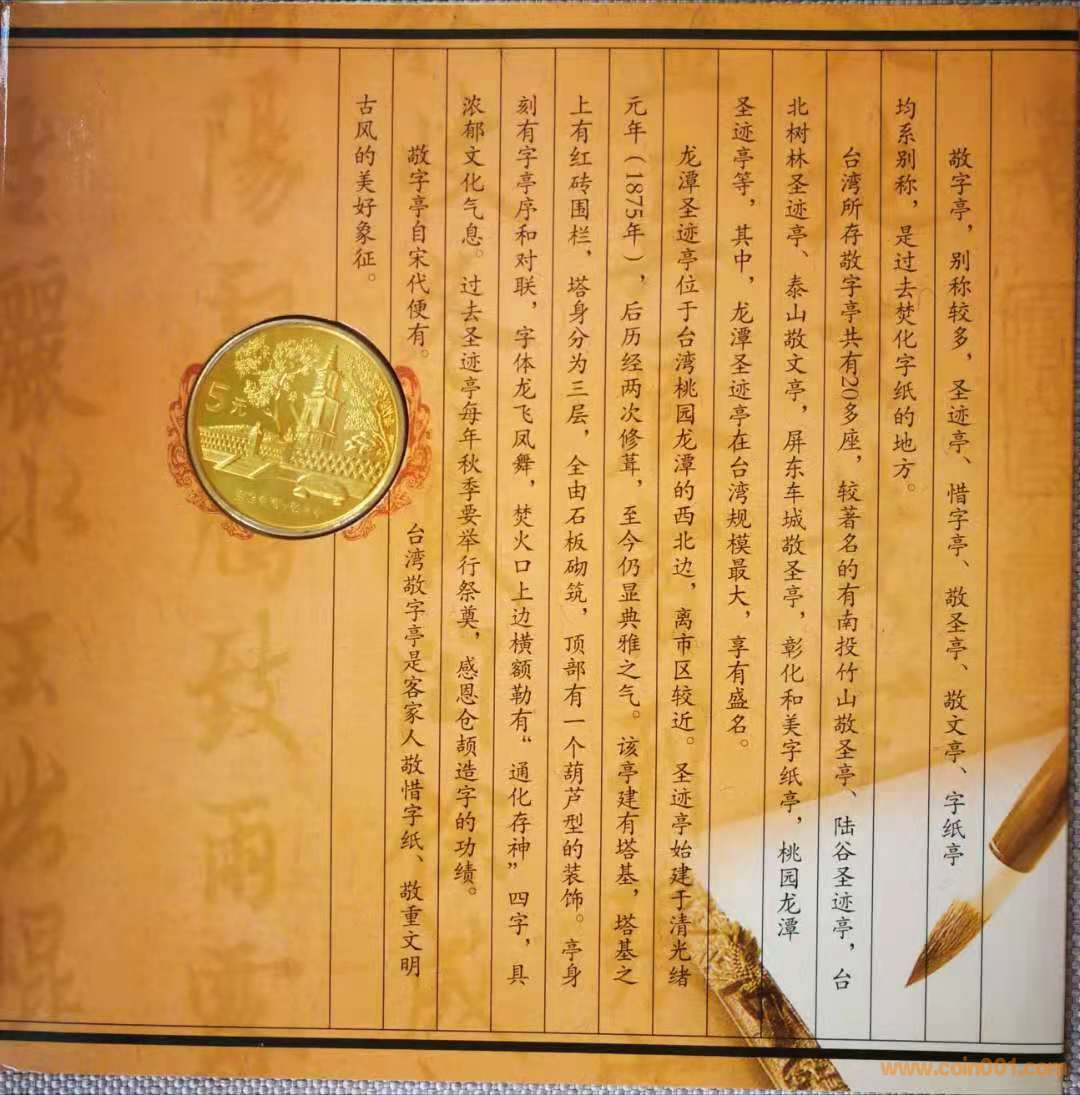 敬字亭，别称较多，圣迹亭、惜字亭、敬圣亭、敬文亭、字纸亭
均系别称，是过去焚化字纸的地方。
台湾所存敬字亭共有20多座，较著名的有南投竹山敬圣亭、陆谷圣迹亭，台
北树林圣迹亭、泰山敬文亭，屏东车城敬圣亭，彰化和美字纸亭，桃园龙潭
圣迹亭等，其中，龙潭圣迹亭在台湾规模最大，享有盛名。
龙潭圣迹亭位于台湾桃园龙潭的西北边，离市区较近。圣迹亭始建于清光绪
元年（1875年），后历经两次修葺，至今仍显典雅之气。该亭建有塔基，塔基之
上有红砖围栏，塔身分为三层，全由石板砌筑，顶部有一个葫芦型的装饰。亭身
刻有字亭序和对联，字体龙飞凤舞，焚火口上边横额勒有“通化存神”四字，具
浓郁文化气息。过去圣迹亭每年秋季要举行祭奠，感恩仓颉造字的功绩。
敬字亭自宋代便有。台湾敬字亭是客家人敬惜字纸、敬重文明
古风的美好象征。
5元
www.coin001.com